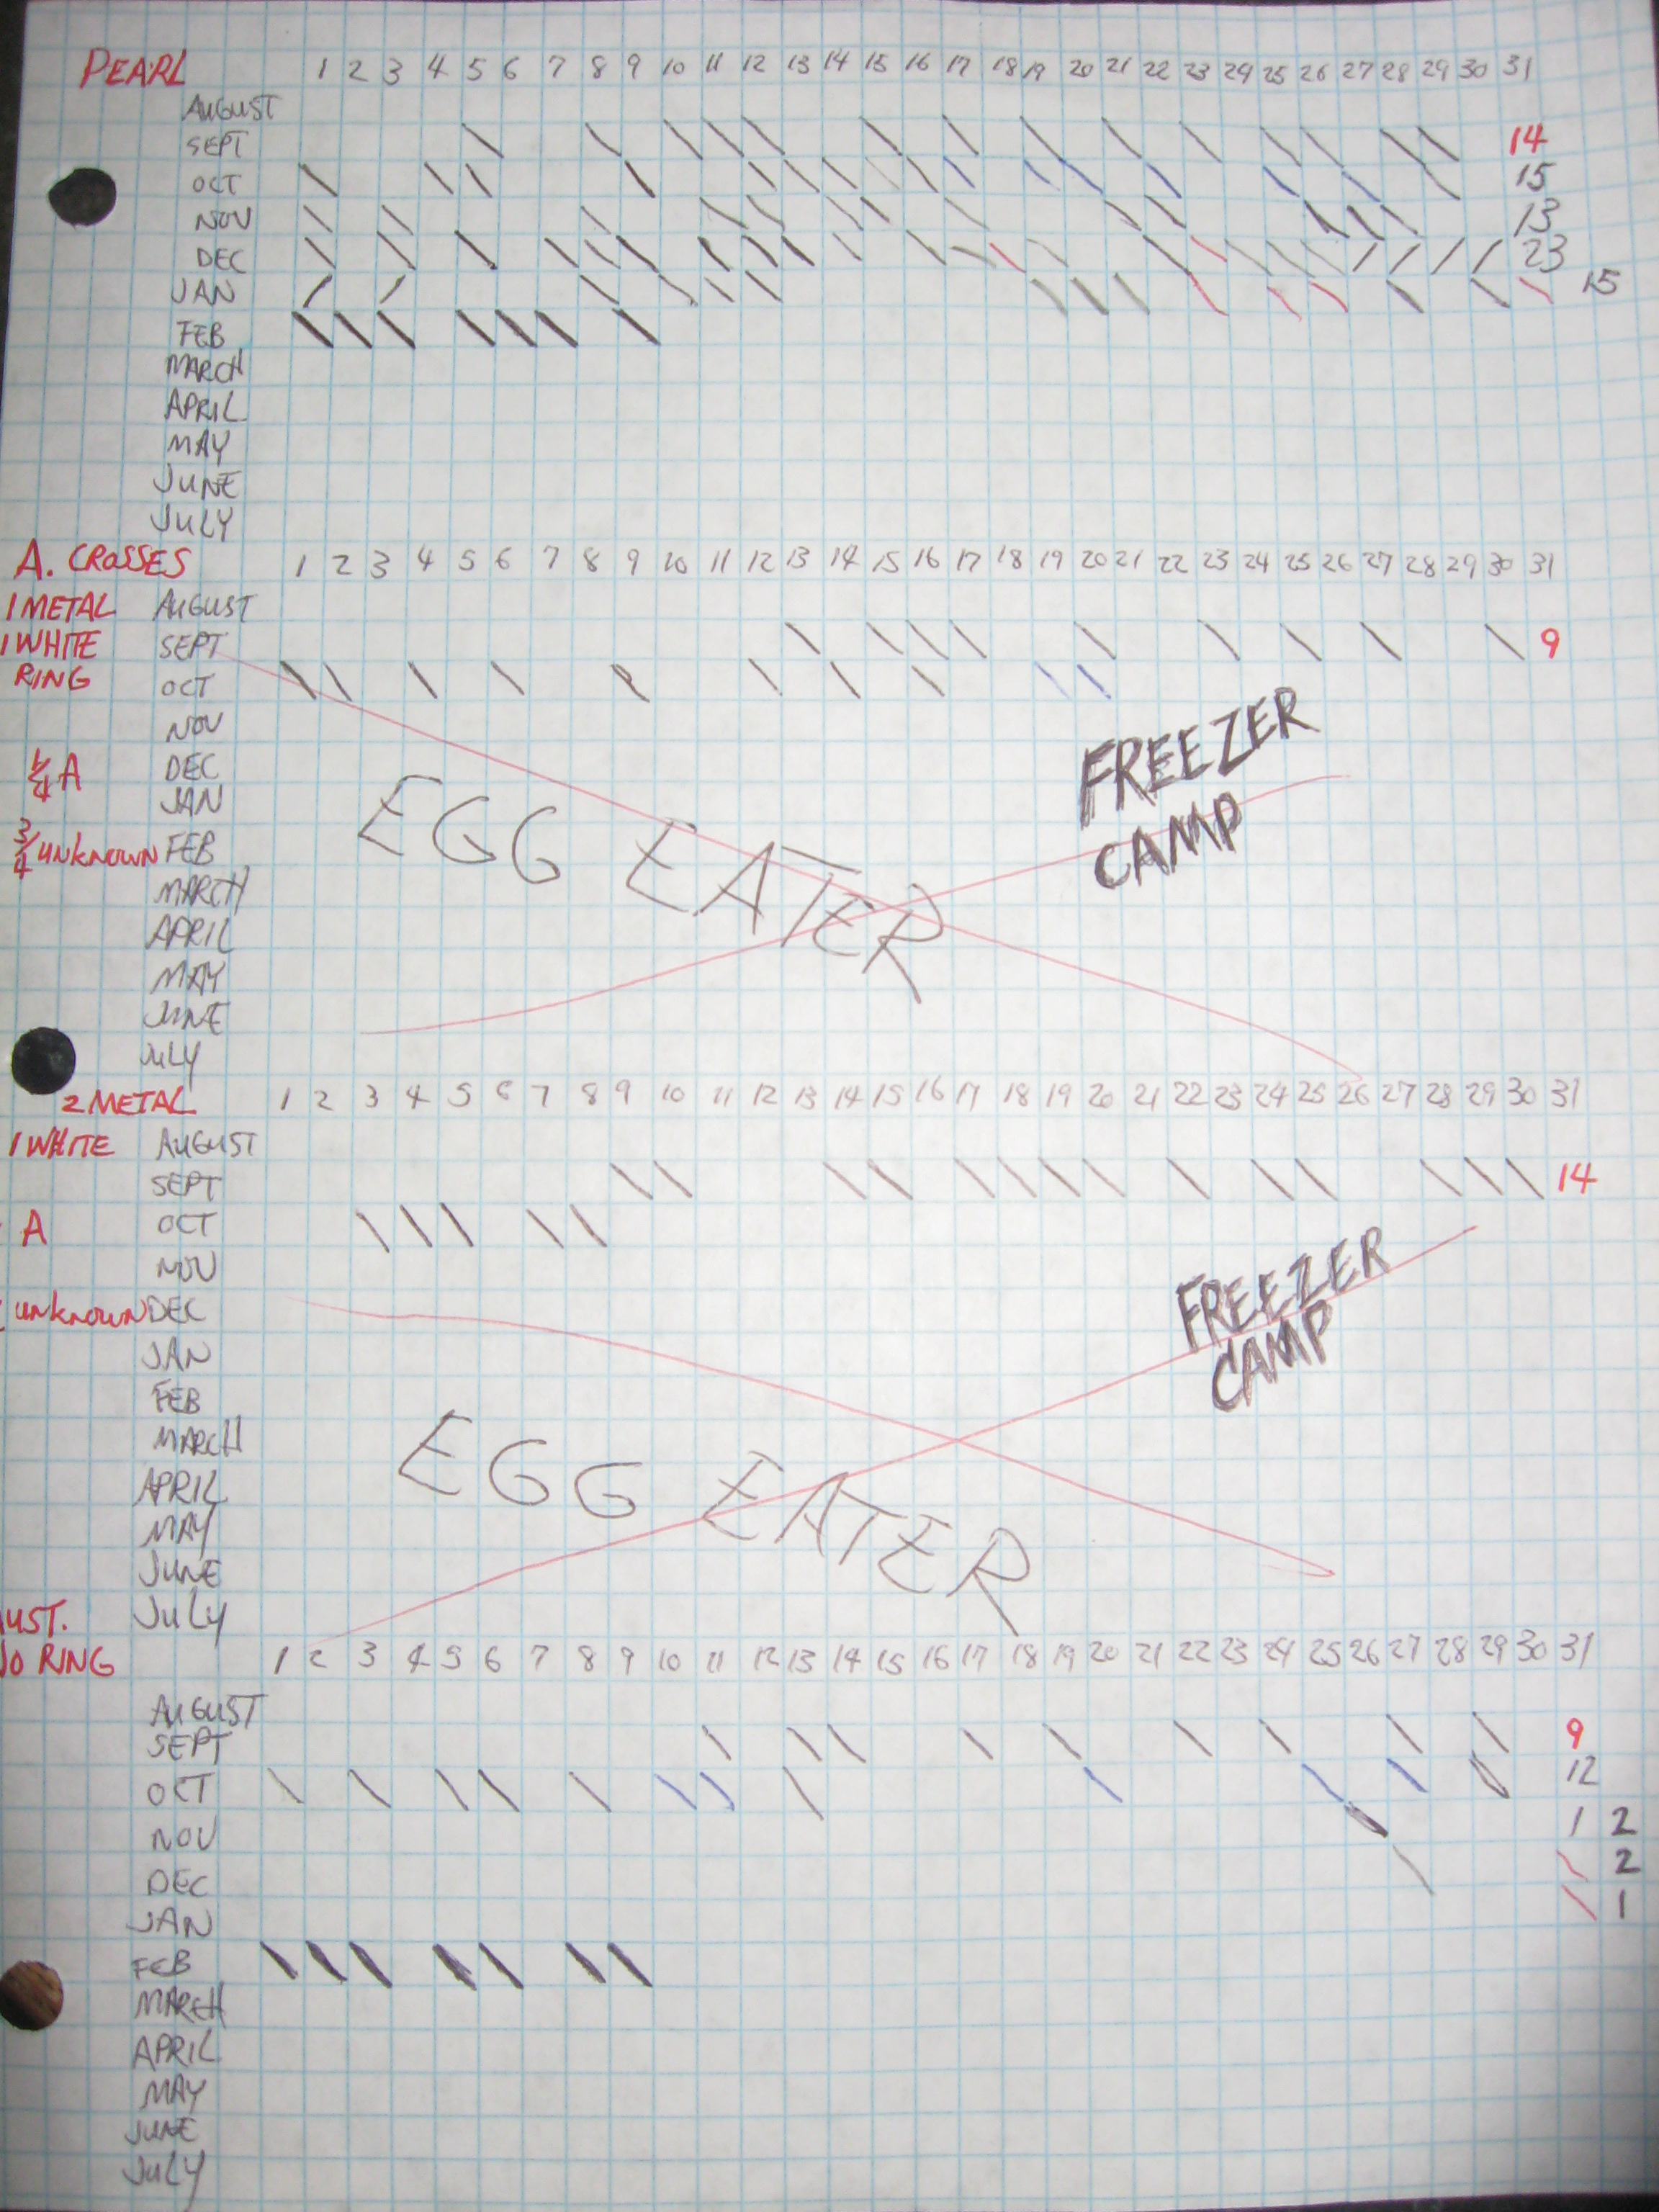 PEARL 1 2 3 4 5 6 7 8 9 10 11 12 13 14 15 16 17 18 19 20 21 22 23 24 25 26 27 28 29 30 31
AUGUST
SEPT 14
OCT 15
NOV 13
DEC 23
JAN 15
FEB
MARCH
APRIL
MAY
JUNE
JULY
A. CROSSES 1 2 3 4 5 6 7 8 9 10 11 12 13 14 15 16 17 18 19 20 21 22 23 24 25 26 27 28 29 30 31
1 METAL AUGUST
1 WHITE SEPT 9
RING OCT
NOV
1/4 A DEC
JAN
3/4 unknown FEB
MARCH
APRIL
MAY
JUNE
JULY
EGG EATER
FREEZER
CAMP
2 METAL 1 2 3 4 5 6 7 8 9 10 11 12 13 14 15 16 17 18 19 20 21 22 23 24 25 26 27 28 29 30 31
1 WHITE AUGUST
SEPT 14
A OCT
NOV
unknown DEC
JAN
FEB
MARCH
APRIL
MAY
JUNE
JULY
EGG EATER
FREEZER
CAMP
UST.
O RING 1 2 3 4 5 6 7 8 9 10 11 12 13 14 15 16 17 18 19 20 21 22 23 24 25 26 27 28 29 30 31
AUGUST
SEPT 9
OCT 12
NOV 1 2
DEC 2
JAN 1
FEB
MARCH
APRIL
MAY
JUNE
JULY